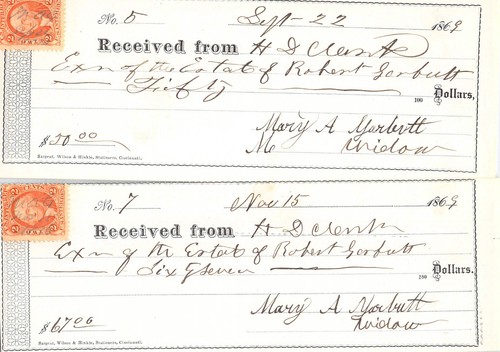 No. 5 Sept 22 1869
Received from H D
Exn of the Estate of Robert Garbutt
Fifty 100 Dollars,
Mary A Garbutt
Widow
$50.00
Sargent, Wilson & Hinkle, Stationers, Cincinnati.
No. 7 Nov 15 1869
Received from H D
Exn of the Estate of Robert Garbutt
Sixty seven 100 Dollars,
Mary A Garbutt
Widow
$67.00
Sargent, Wilson & Hinkle, Stationers, Cincinnati.